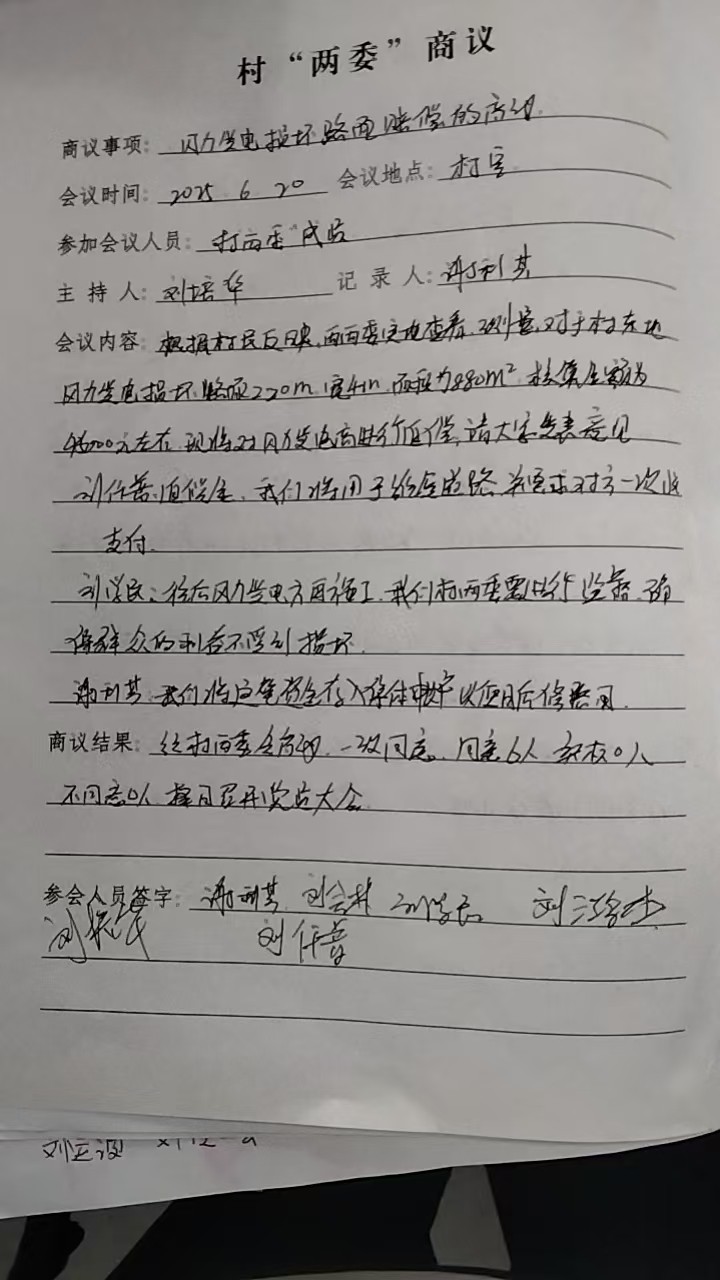 村“两委”商议
商议事项：风力发电损坏路面赔偿的商议
会议时间：2025 6 20 会议地点：村室
参加会议人员：村两委成员
主持人：刘培华 记录人：谢利其
会议内容：根据村民反映，两委实地查看、测量，对于村东地
风力发电损坏路面220m，宽4m，面积为880m² 核算金额为
元左右，现将对风力发电商进行赔偿，请大家发表意见
刘仟普：赔偿金，我们将用于维修道路，并要求对方一次性
支付.
刘学民：往后风力发电方再施工，我们村两委要进行监督，确
保群众的利益不受到损坏.
谢利其：我们将这笔资金存入集体账户以便日后修路用.
商议结果：经村两委会商议，一致同意，同意6人，弃权0人
不同意0人，择日召开党员大会
参会人员签字：谢利其 刘学民
刘仟普